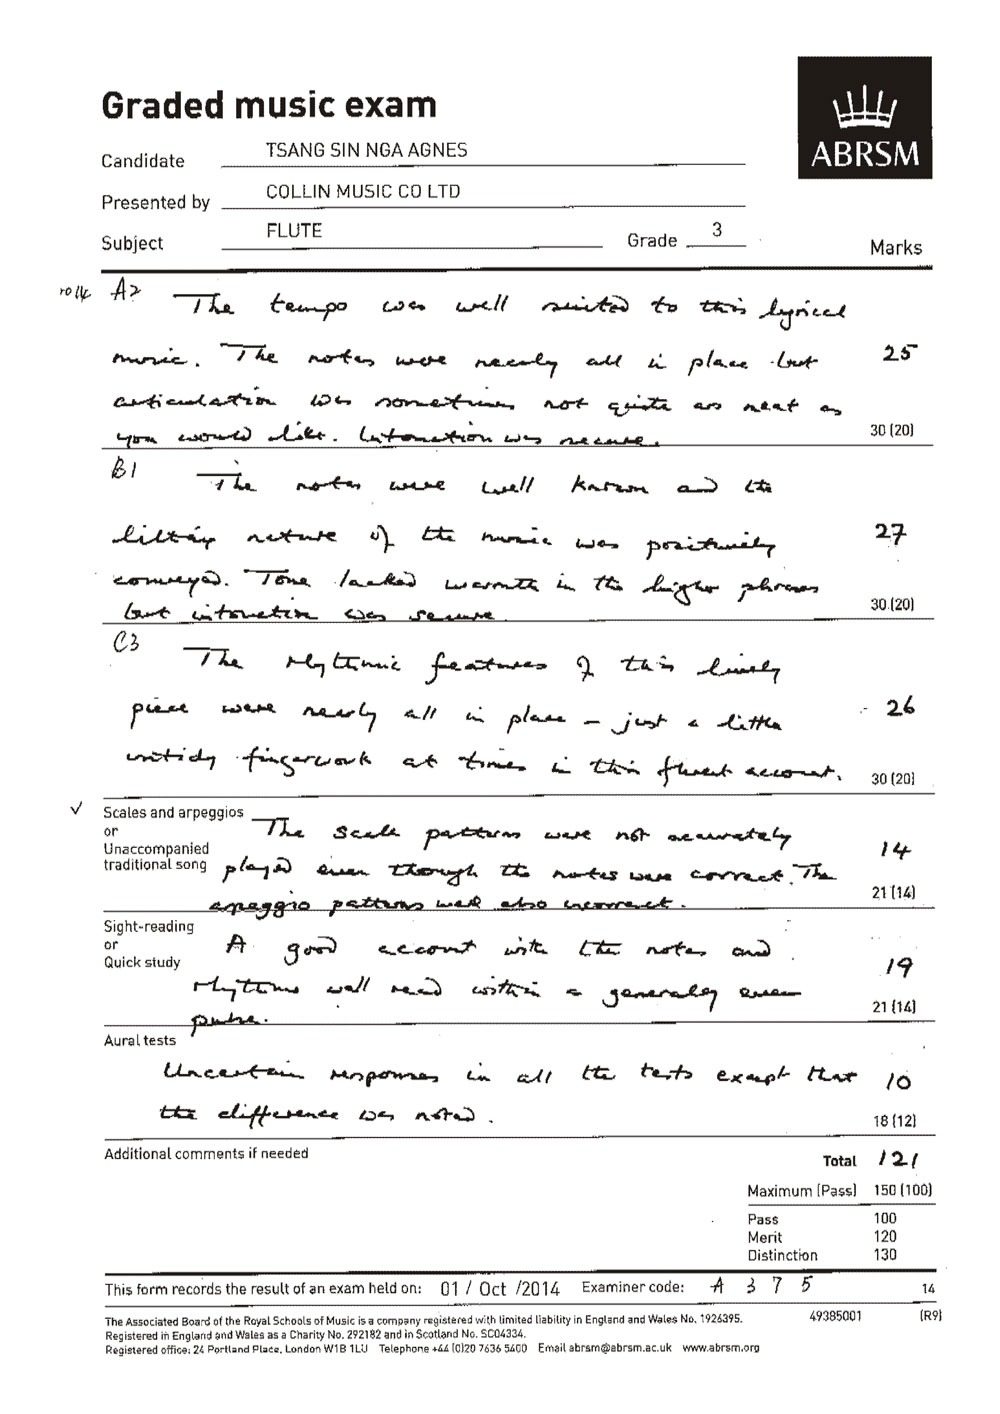 Graded music exam
ABRSM
Candidate TSANG SIN NGA AGNES
Presented by COLLIN MUSIC CO LTD
Subject FLUTE Grade 3
Marks
A2 The tempo was well suited to this lyrical
music. The notes were nearly all in place but 25
articulation was sometimes not quite as neat as
you would like. Intonation was secure. 30 (20)
B1 The notes were well known and the
lilting nature of the music was positively 27
conveyed. Tone lacked warmth in the higher phrases
but intonation was secure. 30 (20)
C3 The rhythmic features of this lively
piece were nearly all in place – just a little 26
untidy fingerwork at times in this fluent account. 30 (20)
✓ Scales and arpeggios
or
Unaccompanied
traditional song
The scale patterns were not accurately 14
played even though the notes were correct. The
arpeggio patterns were also incorrect. 21 (14)
Sight-reading
or
Quick study
A good account with the notes and 19
rhythms well read within a generally even
pulse. 21 (14)
Aural tests
Uncertain responses in all the tests except that 10
the difference was noted. 18 (12)
Additional comments if needed
Total 121
Maximum (Pass) 150 (100)
Pass 100
Merit 120
Distinction 130
This form records the result of an exam held on: 01 / Oct /2014 Examiner code: A 3 7 5 14
The Associated Board of the Royal Schools of Music is a company registered with limited liability in England and Wales No. 1926395. 49385001 (R9)
Registered in England and Wales as a Charity No. 292182 and in Scotland No. SC04334.
Registered office: 24 Portland Place, London W1B 1LU Telephone +44 (0)20 7636 5400 Email abrsm@abrsm.ac.uk www.abrsm.org